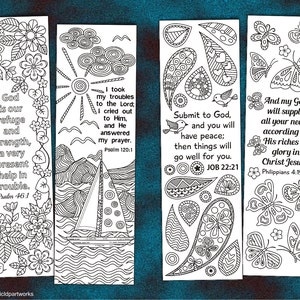 God
is our
refuge
and
strength,
a very
present
help in
trouble.
Psalm 46:1
I took
my troubles
to the Lord;
I cried out
to Him,
and He
answered
my prayer.
Psalm 120:1
Submit to God,
and you will
have peace;
then things will
go well for you.
JOB 22:21
And my God
will supply
all your need
according
His riches
glory in
Christ Jesus
Philippians 4:19